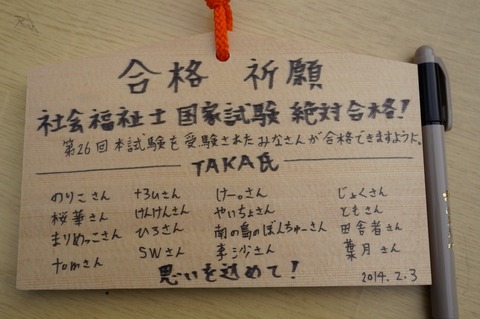 合格 祈願
社会福祉士 国家試験 絶対合格!
第26回本試験を受験されたみなさんが合格できますように。
TAKA氏
のりこさん +3ひさん けー。さん じょくさん
桜華さん けんけんさん やいちょさん ともさん
まりめっこさん ひろさん 南の島のぼんちゅーさん 田舎者さん
tomさん SWさん 李沙さん 葉月さん
思いを込めて!
2014.2.3